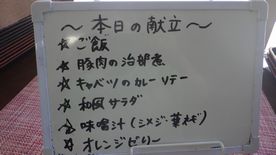 ～本日の献立～
☆ご飯
☆豚肉の治部煮
☆キャベツのカレーソテー
☆和風サラダ
☆味噌汁(シメジ・葉ねぎ)
☆オレンジゼリー